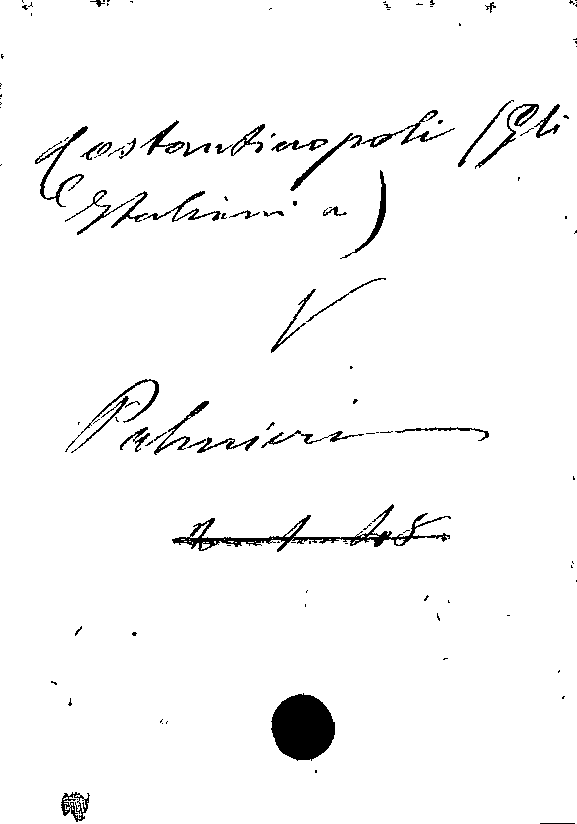 Costantinopoli (Gli
Italiani a)
V
Palmieri